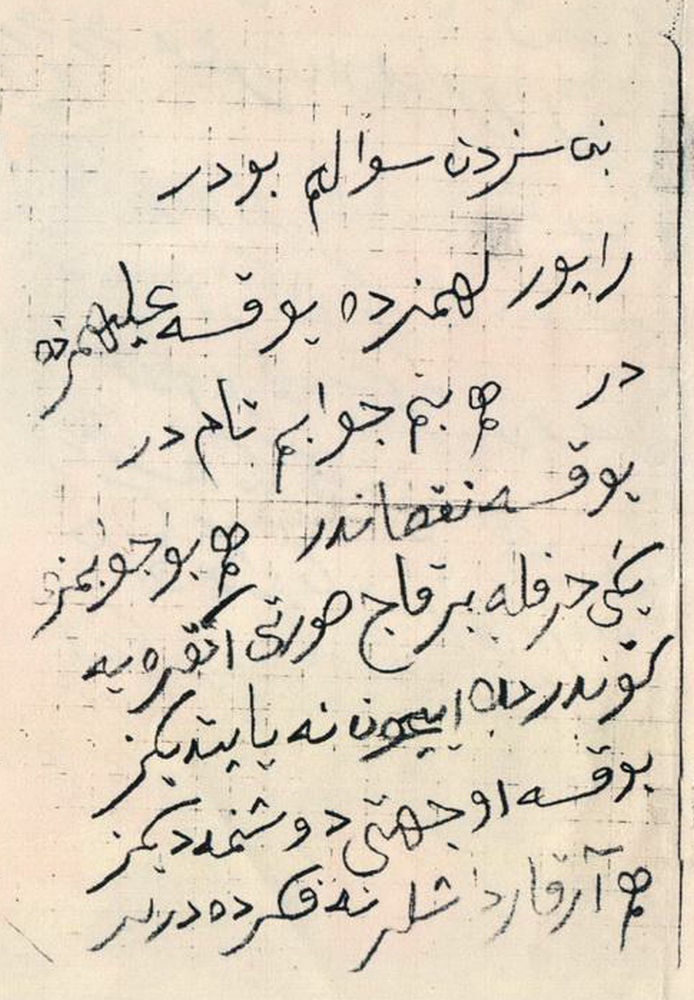 بنم سزدن سوالم بودر
راپور لهمزده یوقسه علیهمزده
در ھ بنم جوابم تام در
یوقسه نقصاندر ھ بو جوابمزی
یکی حرفله بر قاچ صورتی آنقره یه
کوندرمه ایچون نه یاپتدیکز
یوقسه او جهتی دوشنمه دیکز
ھ آرقداشلر نه فکرده درلر